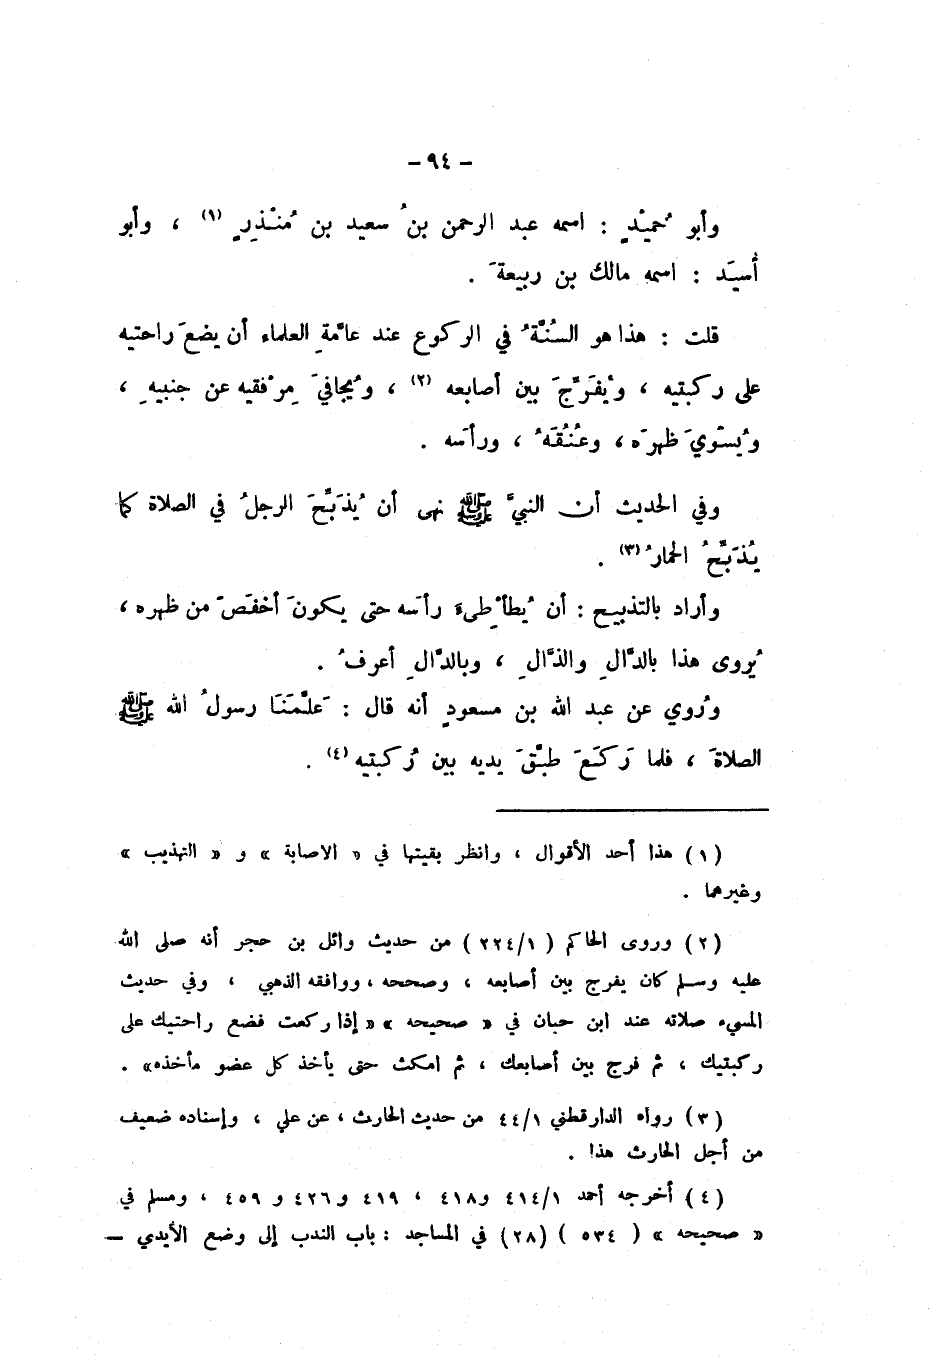 - ٩٤ -
وأبو حُميْدٍ : اسمه عبد الرحمن بنُ سعيد بن مُنْذِرٍ (١) ، وأبو
أُسيَد : اسمه مالك بن ربيعةَ .
قلت : هذا هو السُّنَّةُ في الركوع عند عامَّةِ العلماء أن يضعَ راحتيه
على ركبتيه ، ويُفَرِّجَ بين أصابعه (٢) ، ويُجافيَ مِرْفقيه عن جنبيهِ ،
ويُسَوِّيَ ظهرَه ، وعُنُقَهُ ، ورأسَه .
وفي الحديث أن النبيَّ ﷺ نهى أن يُذَبِّحَ الرجلُ في الصلاة كما
يُذَبِّحُ الحمارُ (٣) .
وأراد بالتذبيح : أن يُطأْطِىءَ رأسَه حتى يكونَ أخفَضَ من ظهره ،
يُروى هذا بالدَّالِ والذَّالِ ، وبالدَّالِ أعرفُ .
ورُوي عن عبد الله بن مسعودٍ أنه قال : عَلَّمَنَا رسولُ الله ﷺ
الصلاةَ ، فلما رَكَعَ طبَّقَ يديه بين رُكبتيه (٤) .
(١) هذا أحد الأقوال ، وانظر بقيتها في « الاصابة » و « التهذيب »
وغيرهما .
(٢) وروى الحاكم ( ٢٢٤/١ ) من حديث وائل بن حجر أنه صلى الله
عليه وسلم كان يفرج بين أصابعه ، وصححه ، ووافقه الذهبي ، وفي حديث
المسيء صلاته عند ابن حبان في « صحيحه » « إذا ركعت فضع راحتيك على
ركبتيك ، ثم فرج بين أصابعك ، ثم امكث حتى يأخذ كل عضو مأخذه» .
(٣) رواه الدارقطني ٤٤/١ من حديث الحارث ، عن علي ، وإسناده ضعيف
من أجل الحارث هذا .
(٤) أخرجه أحمد ٤١٤/١ و٤١٨ ، ٤١٩ و٤٢٦ و ٤٥٩ ، ومسلم في
« صحيحه » ( ٥٣٤ ) (٢٨) في المساجد : باب الندب إلى وضع الأيدي —